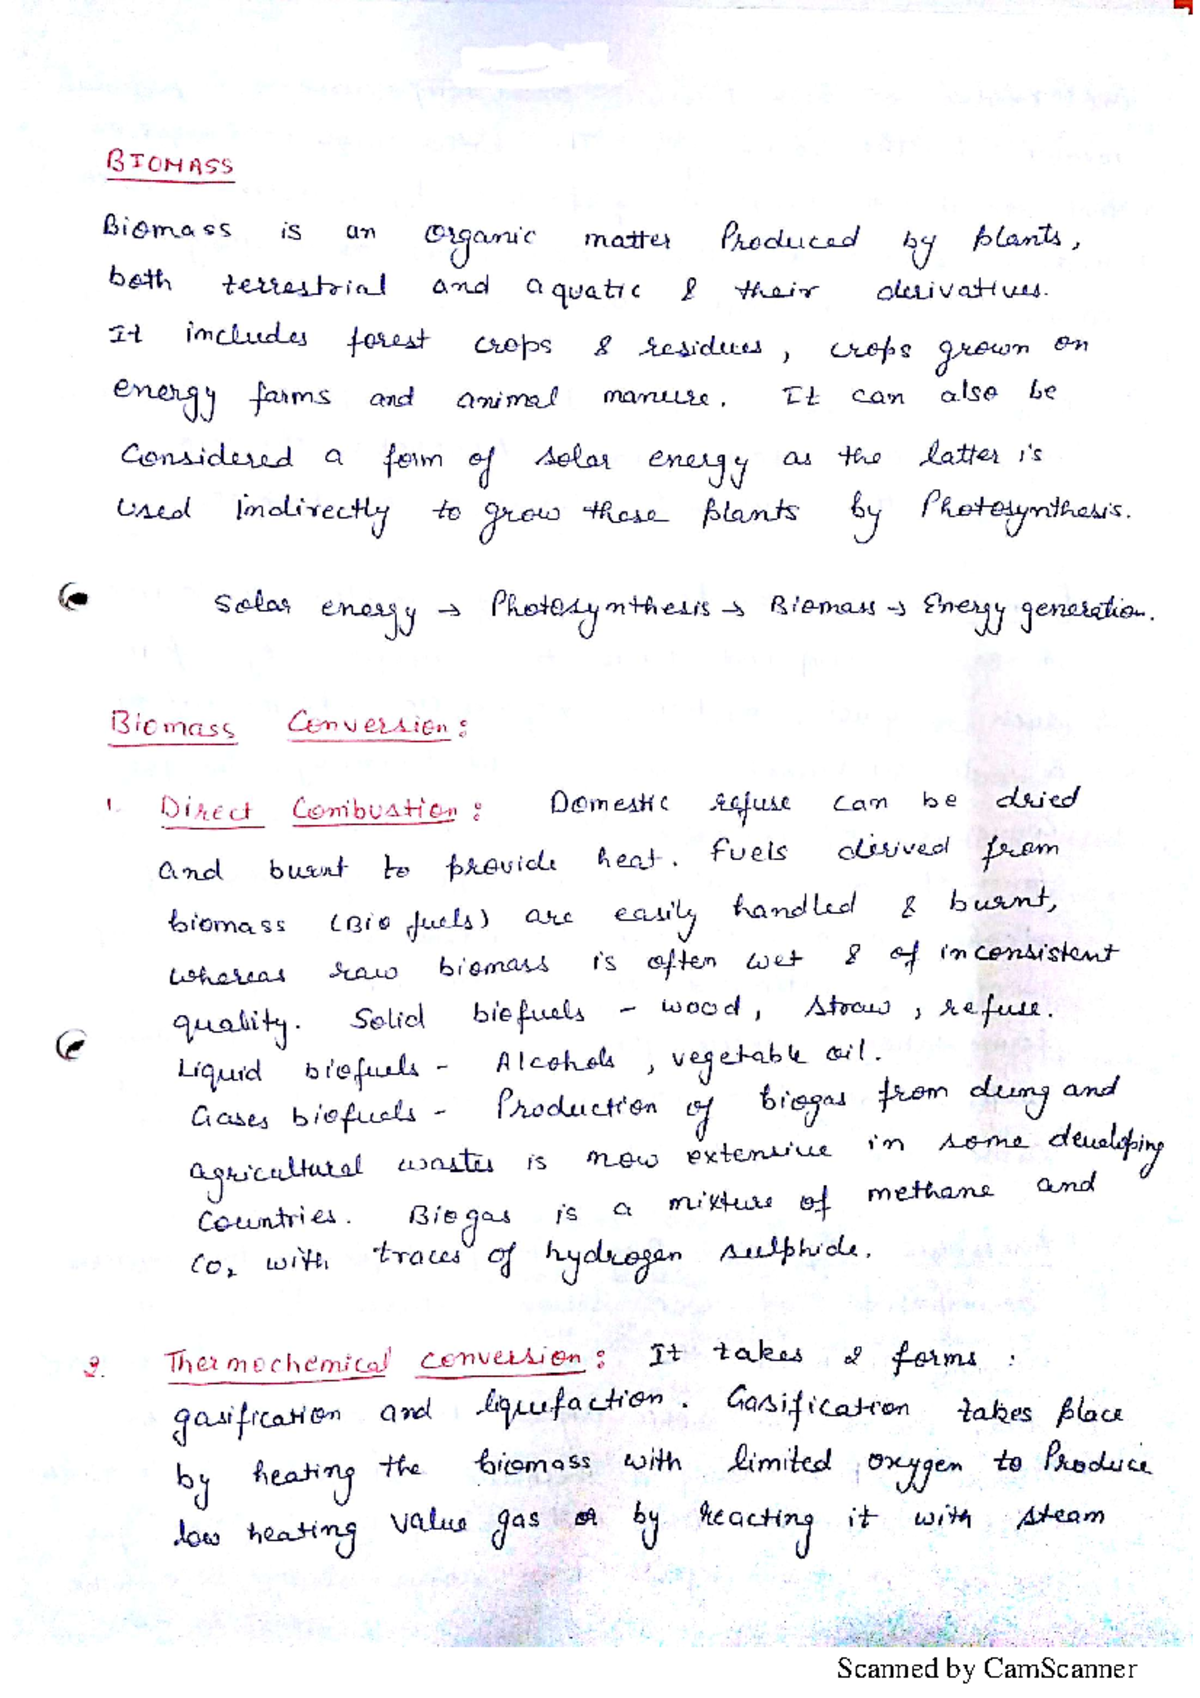 BIOMASS
Biomass is an organic matter Produced by plants,
both terrestrial and aquatic & their derivatives.
It includes forest crops & residues, crops grown on
energy farms and animal manure. It can also be
Considered a form of solar energy as the latter is
used indirectly to grow these plants by Photosynthesis.
Solar energy → Photosynthesis → Biomass → Energy generation.
Biomass Conversion:
1. Direct Combustion: Domestic refuse can be dried
and burnt to provide heat. Fuels derived from
biomass (Bio fuels) are easily handled & burnt,
whereas raw biomass is often wet & of inconsistent
quality. Solid biofuels - wood, straw, refuse.
Liquid biofuels - Alcohols, vegetable oil.
Gases biofuels - Production of biogas from dung and
agricultural wastes is now extensive in some developing
countries. Biogas is a mixture of methane and
CO₂ with traces of hydrogen sulphide.
2. Thermochemical conversion: It takes 2 forms:
gasification and liquefaction. Gasification takes place
by heating the biomass with limited oxygen to Produce
low heating value gas or by reacting it with steam
Scanned by CamScanner